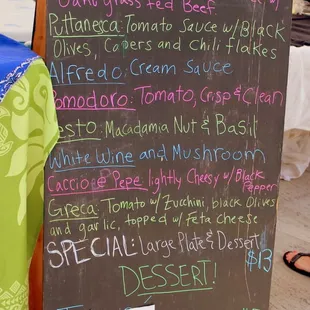 Oahu grass fed Beef
Puttanesca: Tomato Sauce w/ Black
Olives, Capers and Chili flakes
Alfredo: Cream Sauce
Pomodoro: Tomato, Crisp & Clean
Pesto: Macadamia Nut & Basil
White Wine and Mushroom
Caccio e Pepe lightly Cheesy w/ Black
Pepper
Greca: Tomato w/ Zucchini, black Olives
and garlic, topped w/ feta cheese
SPECIAL: Large Plate & Dessert
$13
DESSERT!